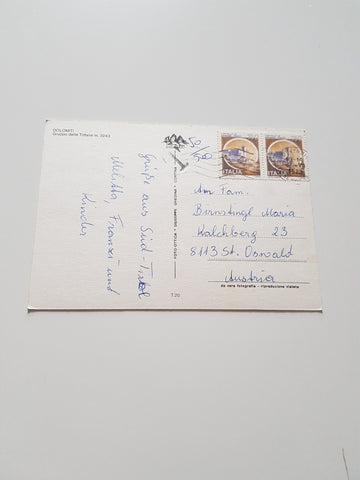 DOLOMITI
Gruppo delle Tofane m. 3243
50/50
Grüße aus Süd-Tirol
Melitta, Franzi und
Kinder
ITALIA
ITALIA
An Fam.
Birnstingl Maria
Kalchberg 23
8113 St. Oswald
Austria
da vera fotografia - riproduzione vietata
T 20